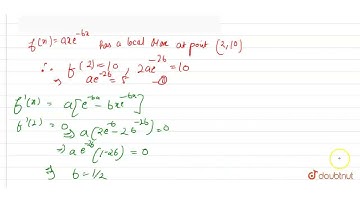 f(x)=axe^{-bx} has a local max at point (2,10)
∴ f(2)=10, 2ae^{-2b}=10
⇒ ae^{-2b}=5 -①
f'(x) = a[e^{-bx} - bxe^{-bx}]
f'(2) = 0 ⇒ a(2e^{-b} - 2b^{-2b})=0
⇒ ae^{-2b}(1-2b) = 0
⇒ b=1/2
doubtnut